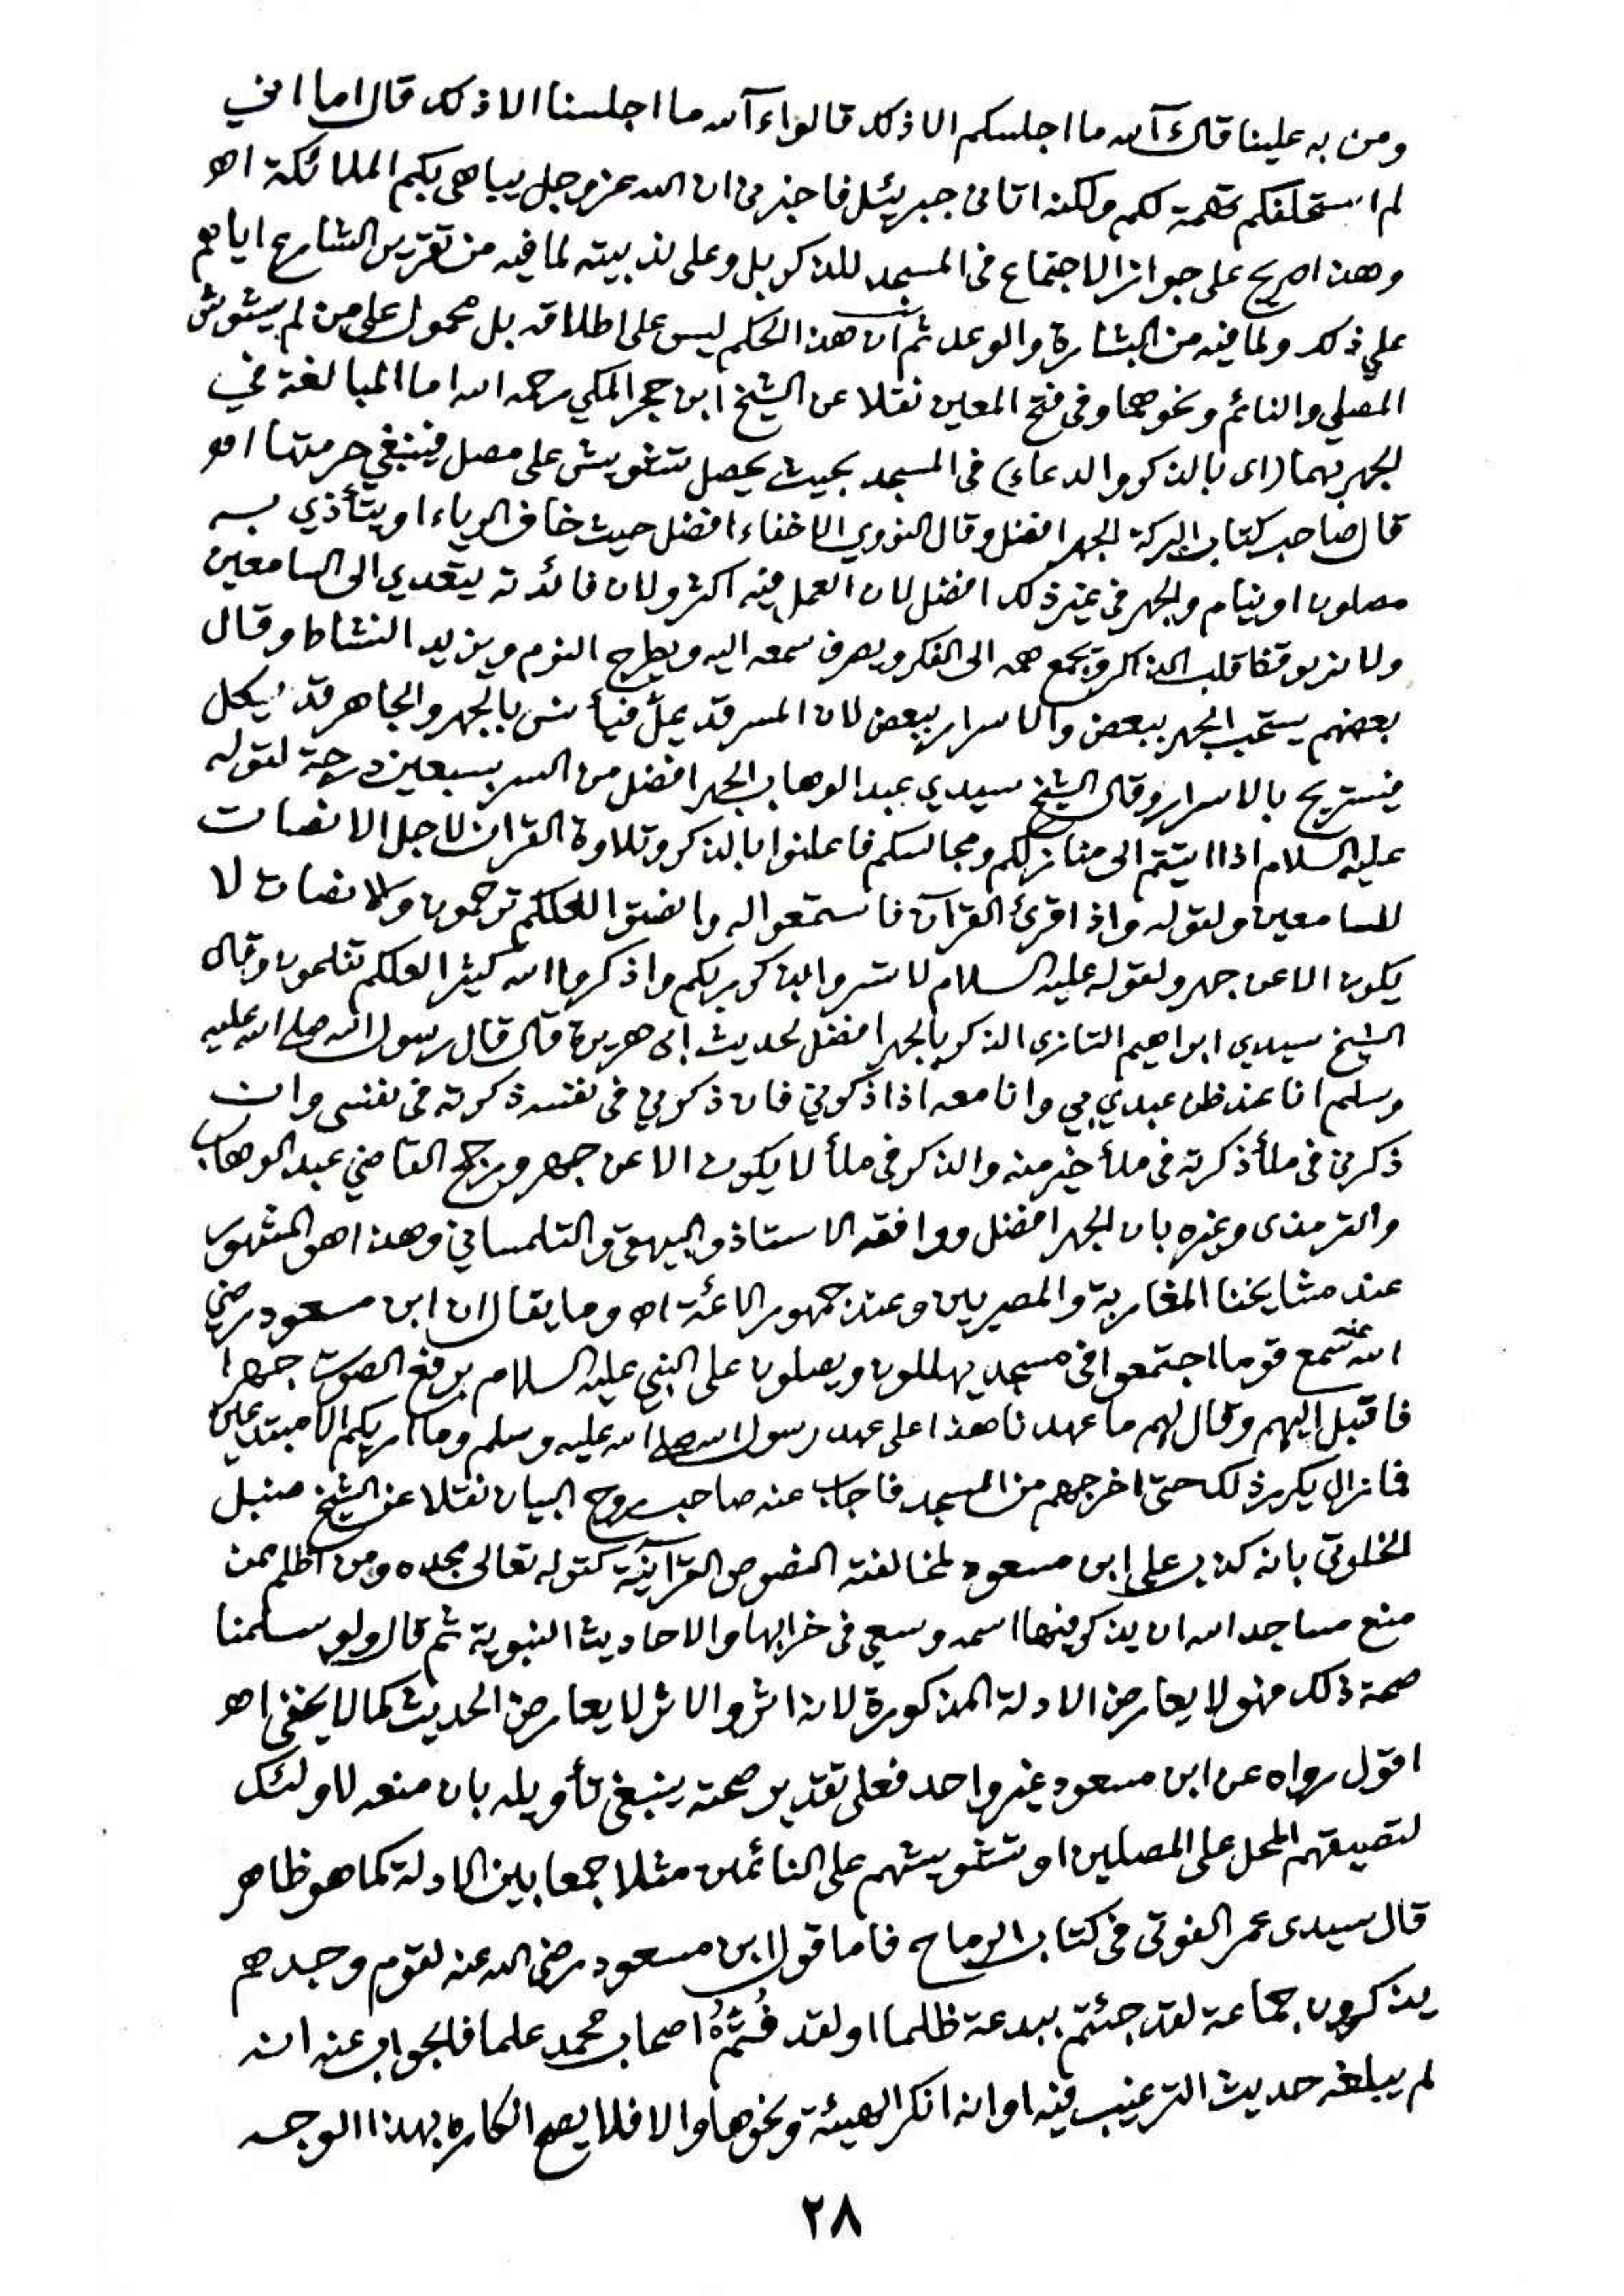 ومن به علينا قال آلله ما اجلسكم الا ذلك قالوا ءآلله ما اجلسنا الا ذلك قال اما اني
لم استحلفكم تهمة لكم ولكنه اتانى جبريئل فاخبرنى ان الله عزوجل يباهى بكم الملائكة اهـ
وهذا صريح على جواز الاجتماع فى المسجد للذكر بل وعلى ندبيته لما فيه من تقرير الشارع اياهم
على ذلك ولما فيه من البشارة والوعد ثم ان هذا الحكم ليس على اطلاقه بل محمول على من لم يشوش
المصلي والنائم ونحوهما وفى فتح المعين نقلا عن الشيخ ابن حجر المكي رحمه الله اما المبالغة في
الجهر بهما (اى بالذكر والدعاء) فى المسجد بحيث يحصل تشويش على مصل فينبغي حرمتها اهـ
قال صاحب كتاب البركة الجهر افضل وقال النووي الاخفاء افضل حيث خاف الرياء او يتأذي به
مصلون او نيام والجهر فى غير ذلك افضل لان العمل فيه اكثر ولان فائدته يتعدي الى السامعين
ولانه يوقظ قلب الذاكر ويجمع همه الى الفكر ويصرف سمعه اليه ويطرح النوم ويزيد النشاط وقال
بعضهم يستحب الجهر ببعض والاسرار ببعض لان المسر قد يملّ فيأنس بالجهر والجاهر قد يكل
فيستريح بالاسرار وقال الشيخ سيدي عبد الوهاب الجهر افضل من السر بسبعين درجة لقوله
عليه السلام اذا اتيتم الى منازلكم ومجالسكم فاعلنوا بالذكر وتلاوة القران لاجل الانصات
للسامعين ولقوله واذا قرئ القرآن فاستمعوا له وانصتوا لعلكم ترحمون والانصات لا
يكون الا عن جهر ولقوله عليه السلام لا تسروا بذكر ربكم واذكروا الله كثيرا لعلكم تفلحون وقال
الشيخ سيدي ابراهيم التازى الذكر بالجهر افضل لحديث ابى هريرة قال قال رسول الله صلى الله عليه
وسلم انا عند ظن عبدي بي وانا معه اذا ذكرني فان ذكرني فى نفسه ذكرته فى نفسى وان
ذكرنى فى ملأ ذكرته فى ملأ خير منه والذكر فى ملأ لا يكون الا عن جهر ورجح القاضي عبد الوهاب
والترمذى وغيره بان الجهر افضل ووافقه الاستاذ والبيهقى والتلمساني وهذا هو المشهور
عند مشايخنا المغاربة والمصريين وعند جمهور الائمة اهـ وما يقال ان ابن مسعود رضي
الله عنه سمع قوما اجتمعوا فى مسجد يهللون ويصلون على النبي عليه السلام برفع الصوت جهرا
فاقبل اليهم وقال لهم ما عهدنا هذا على عهد رسول الله صلى الله عليه وسلم وما اريكم الا مبتدعين
فما زال يكرر ذلك حتى اخرجهم من المسجد فاجاب عنه صاحب روح البيان نقلا عن الشيخ صنبل
الخلوتى بانه كذب على ابن مسعود لمخالفته النصوص القرآنية كقوله تعالى مجده ومن اظلم ممن
منع مساجد الله ان يذكر فيها اسمه وسعى فى خرابها والاحاديث النبوية ثم قال ولو سلمنا
صحة ذلك فهو لا يعارض الادلة المذكورة لانه اثر والاثر لا يعارض الحديث كما لا يخفى اهـ
اقول رواه عن ابن مسعود غير واحد فعلى تقدير صحته ينبغى تأويله بان منعه لاولئك
لتضييقهم المحل على المصلين او تشويشهم على النائمين مثلا جمعا بين الادلة كما هو ظاهر
قال سيدى عمر الفوتى فى كتاب الرماح فاما قول ابن مسعود رضى الله عنه لقوم وجدهم
يذكرون جماعة لقد جئتم ببدعة ظلما او لقد فُتّمُ اصحاب محمد علما فالجواب عنه انه
لم يبلغه حديث الترغيب فيه او انه انكر الهيئة ونحوها والا فلا يصح انكاره بهذا الوجه
٢٨